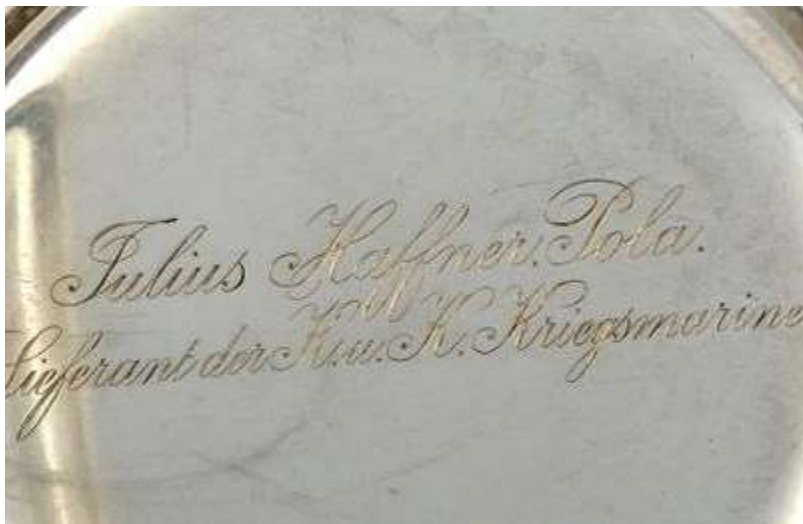 Julius Haffner. Pola.
Lieferant der K. u. K. Kriegsmarine